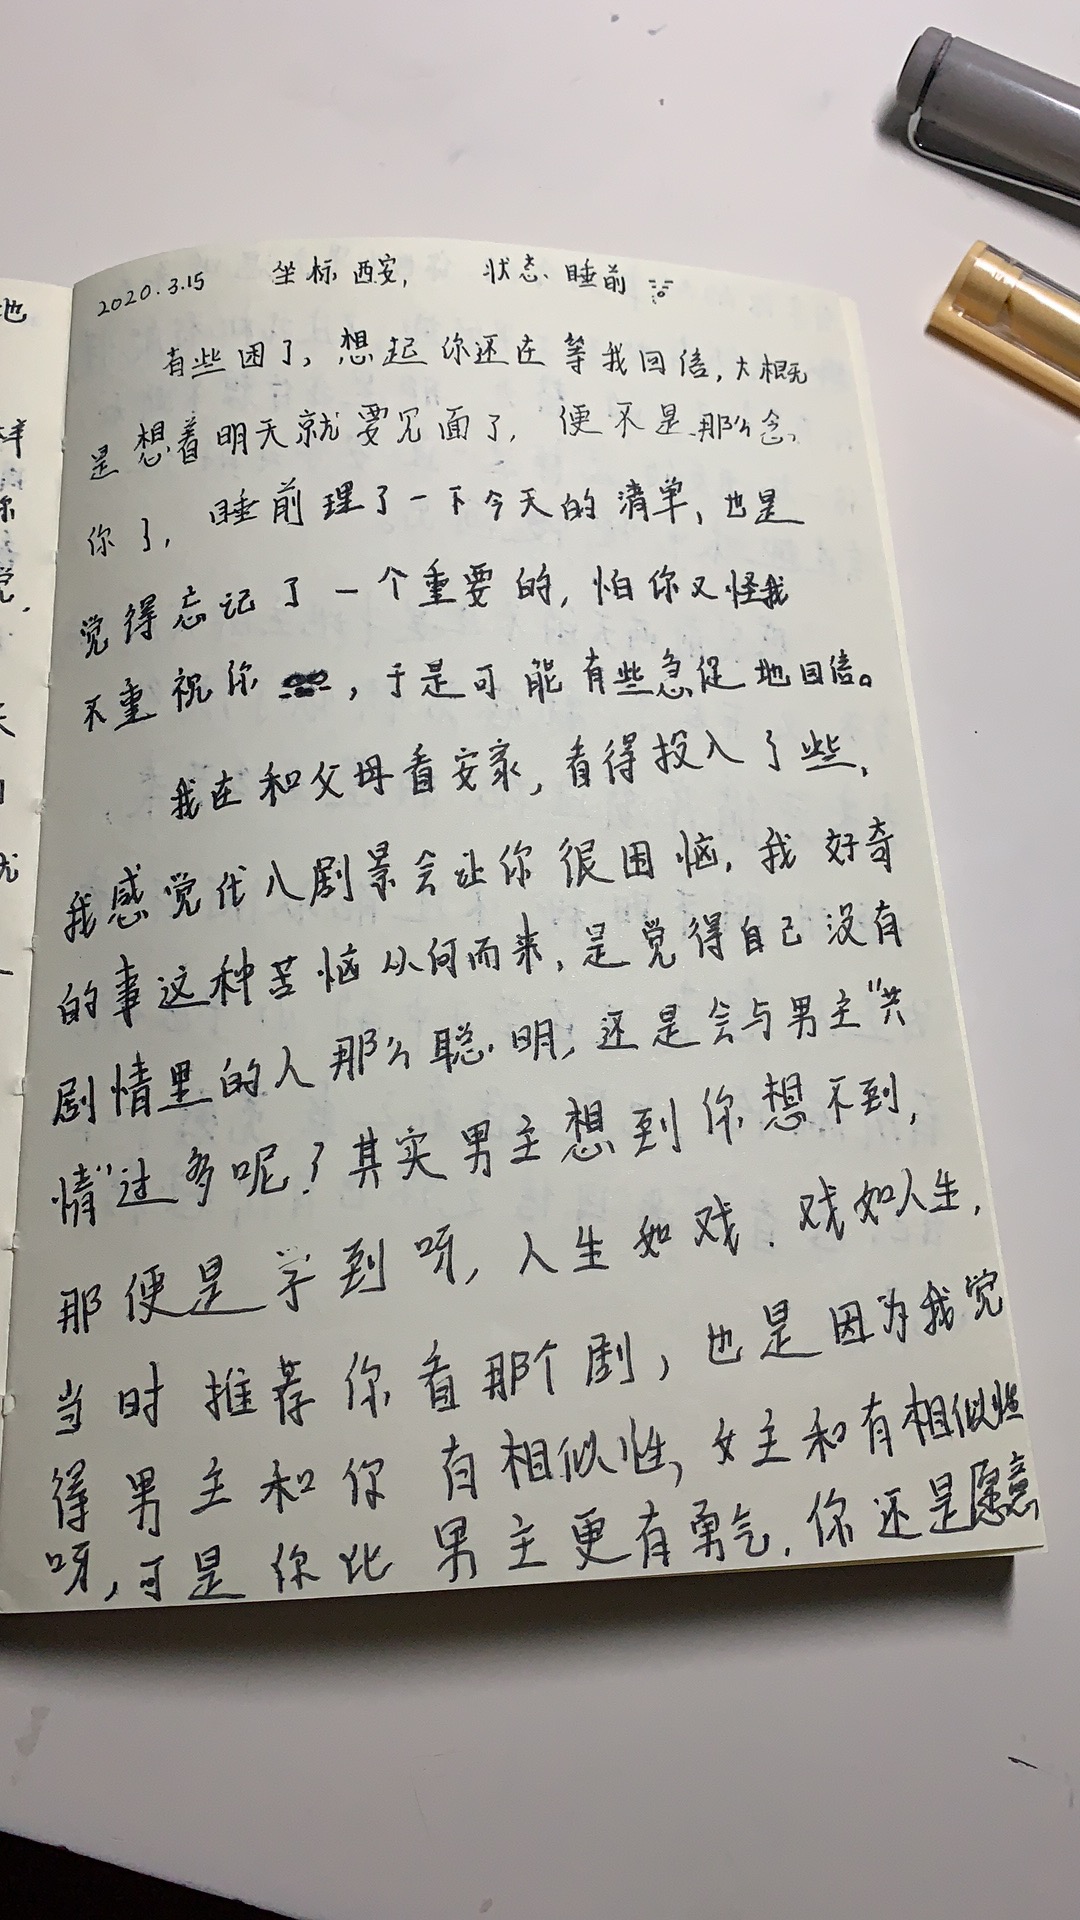 2020.3.15 坐标西安, 状态、睡前
有些困了, 想起你还在等我回信, 大概
是想着明天就要见面了, 便不是那么念
你了, 睡前理了一下今天的清单, 也是
觉得忘记了一个重要的, 怕你又怪我
不重视你, 于是可能有些急促地回信。
我在和父母看安家, 看得投入了些,
我感觉代入剧景会让你很困恼, 我好奇
的事这种苦恼从何而来, 是觉得自己没有
剧情里的人那么聪明, 还是会与男主“共
情”过多呢? 其实男主想到你想不到,
那便是学到呀, 人生如戏. 戏如人生,
当时推荐你看那个剧, 也是因为我觉
得男主和你有相似性, 女主和有相似性
呀, 可是你比男主更有勇气. 你还是愿意
地
样
你
觉,
天